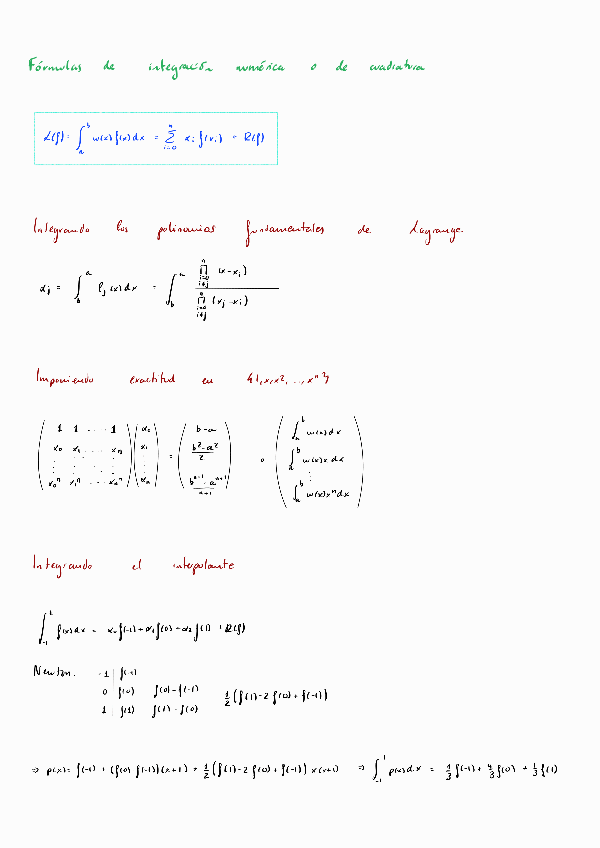 Fórmulas de integración numérica o de cuadratura
L(f) = ∫_a^b w(x) f(x) dx = Σ_{i=0}^n α_i f(x_i) + R(f)
Integrando los polinomios fundamentales de Lagrange.
α_j = ∫_b^a l_j(x) dx = ∫_b^a ∏_{i=0, i≠j}^n (x-x_i) / ∏_{i=0, i≠j}^n (x_j-x_i)
Imponiendo exactitud en {1,x,x²,...,xⁿ}
( 1 1 ... 1 ; x_0 x_1 ... x_n ; ⋮ ⋮ ⋮ ; x_0^n x_1^n ... x_n^n ) ( α_0 ; α_1 ; ⋮ ; α_n ) = ( b-a ; (b²-a²)/2 ; ⋮ ; (b^{n+1}-a^{n+1})/(n+1) ) o ( ∫_a^b w(x) dx ; ∫_a^b w(x) x dx ; ⋮ ; ∫_a^b w(x) x^n dx )
Integrando el interpolante
∫_{-1}^1 f(x) dx = α_0 f(-1) + α_1 f(0) + α_2 f(1) + R(f)
Newton. -1 | f(-1)
0 | f(0) f(0) - f(-1) 1/2 (f(1) - 2 f(0) + f(-1))
1 | f(1) f(1) - f(0)
⇒ p(x) = f(-1) + (f(0) f(-1))(x+1) + 1/2 (f(1) - 2 f(0) + f(-1)) x(x+1) ⇒ ∫_{-1}^1 p(x) dx = 1/3 f(-1) + 4/3 f(0) + 1/3 f(1)